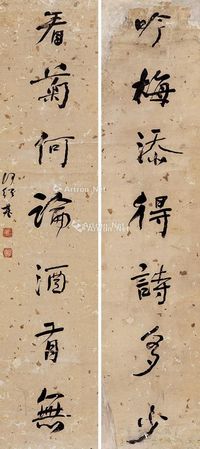 吟梅添得詩多少
看菊何論酒有無
何紹基